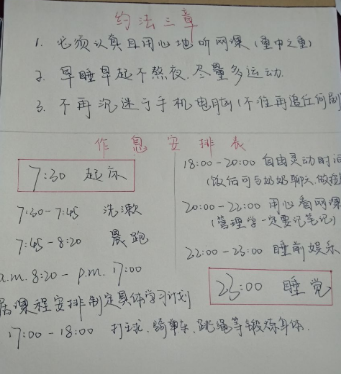 约法三章
1. 必须认真且用心地听网课(重中之重)
2. 早睡早起不熬夜、尽量多运动.
3. 不再沉迷于手机电脑(不准再追任何剧
作息安排表
7:30 起床
7:30-7:45 洗漱
7:45-8:20 晨跑
a.m. 8:20 - p.m. 17:00
居课程安排制定具体学习计划
17:00-18:00 打球、骑单车、跳绳等锻炼身体.
18:00-20:00 自由灵动时间
(饭后可与奶奶聊天、做
20:00-22:00 用心看网课
(管理学一定要记笔记)
22:00-23:00 睡前娱乐
23:00 睡觉